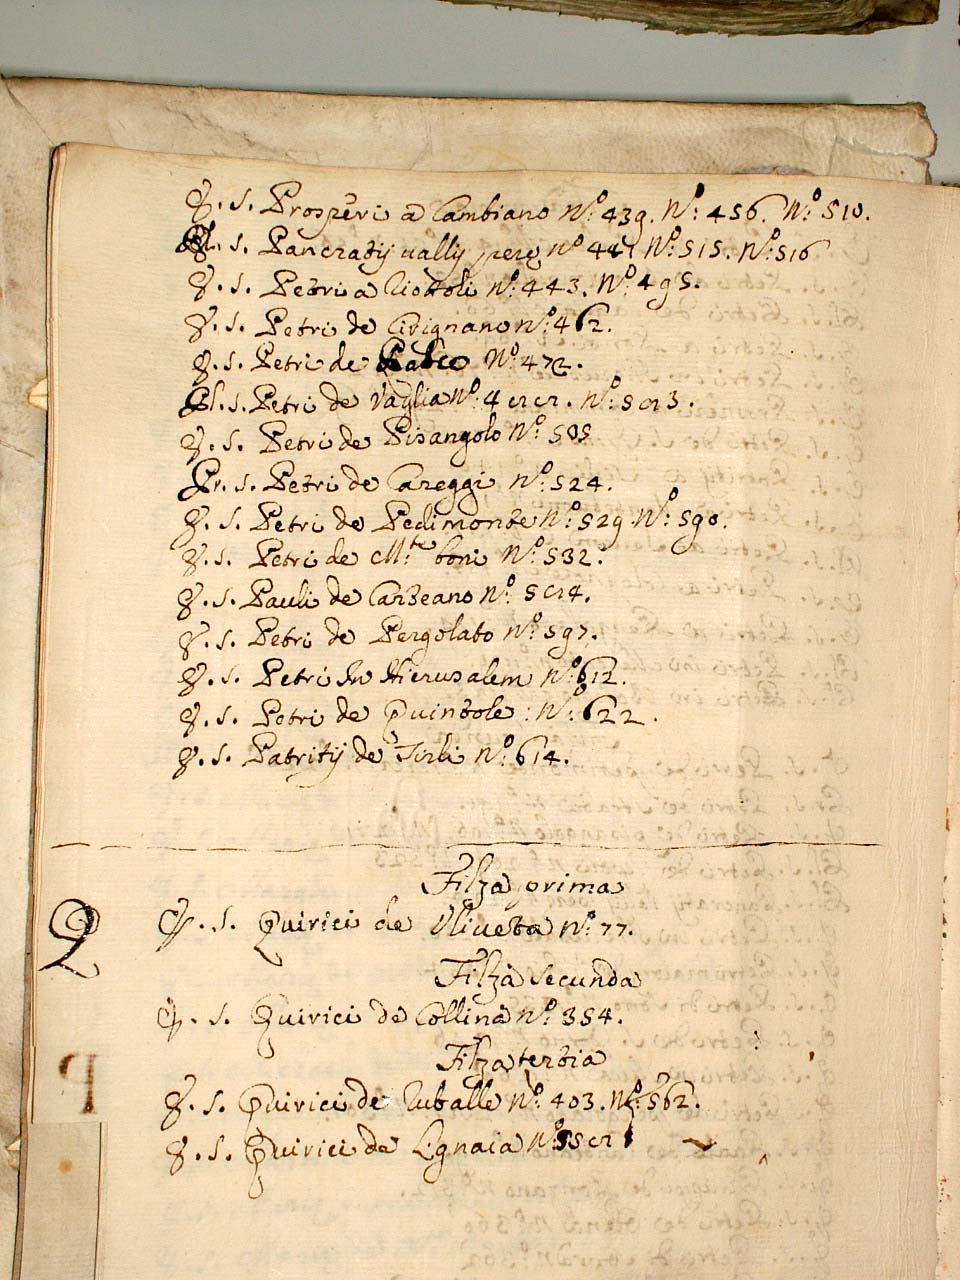 E. S. Prosperi a Cambiano N.º 439. N.º 456. N.º 510.
Pl. S. Pancratij vallij pese N.º N.º 515. N.º 516
E. S. Petri a N.º 443. N.º 495.
E. S. Petri de N.º 462.
E. S. Petri de N.º 472.
Pl. S. Petri de Vaglia N.º N.º
E. S. Petri de Pisangolo N.º 505
Pr. S. Petri de Careggi N.º 524.
E. S. Petri de Pedimonte N.º 529. N.º 590.
E. S. Petri de M.te boni N.º 532.
E. S. Pauli de N.º
E. S. Petri de Pergolato N.º 597.
E. S. Petri In Hierusalem N.º 612.
E. S. Petri de Quintole : N.º 622.
E. S. Patritij de Tirli N.º 614.
Filza prima
Q
E. S. Quirici de Uliveta N.º 77.
Filza secunda
E. S. Quirici de Collina N.º 354.
Filza tertia
E. S. Quirici de Ruballe N.º 403. N.º 562.
E. S. Quirici de Lignaia N.º